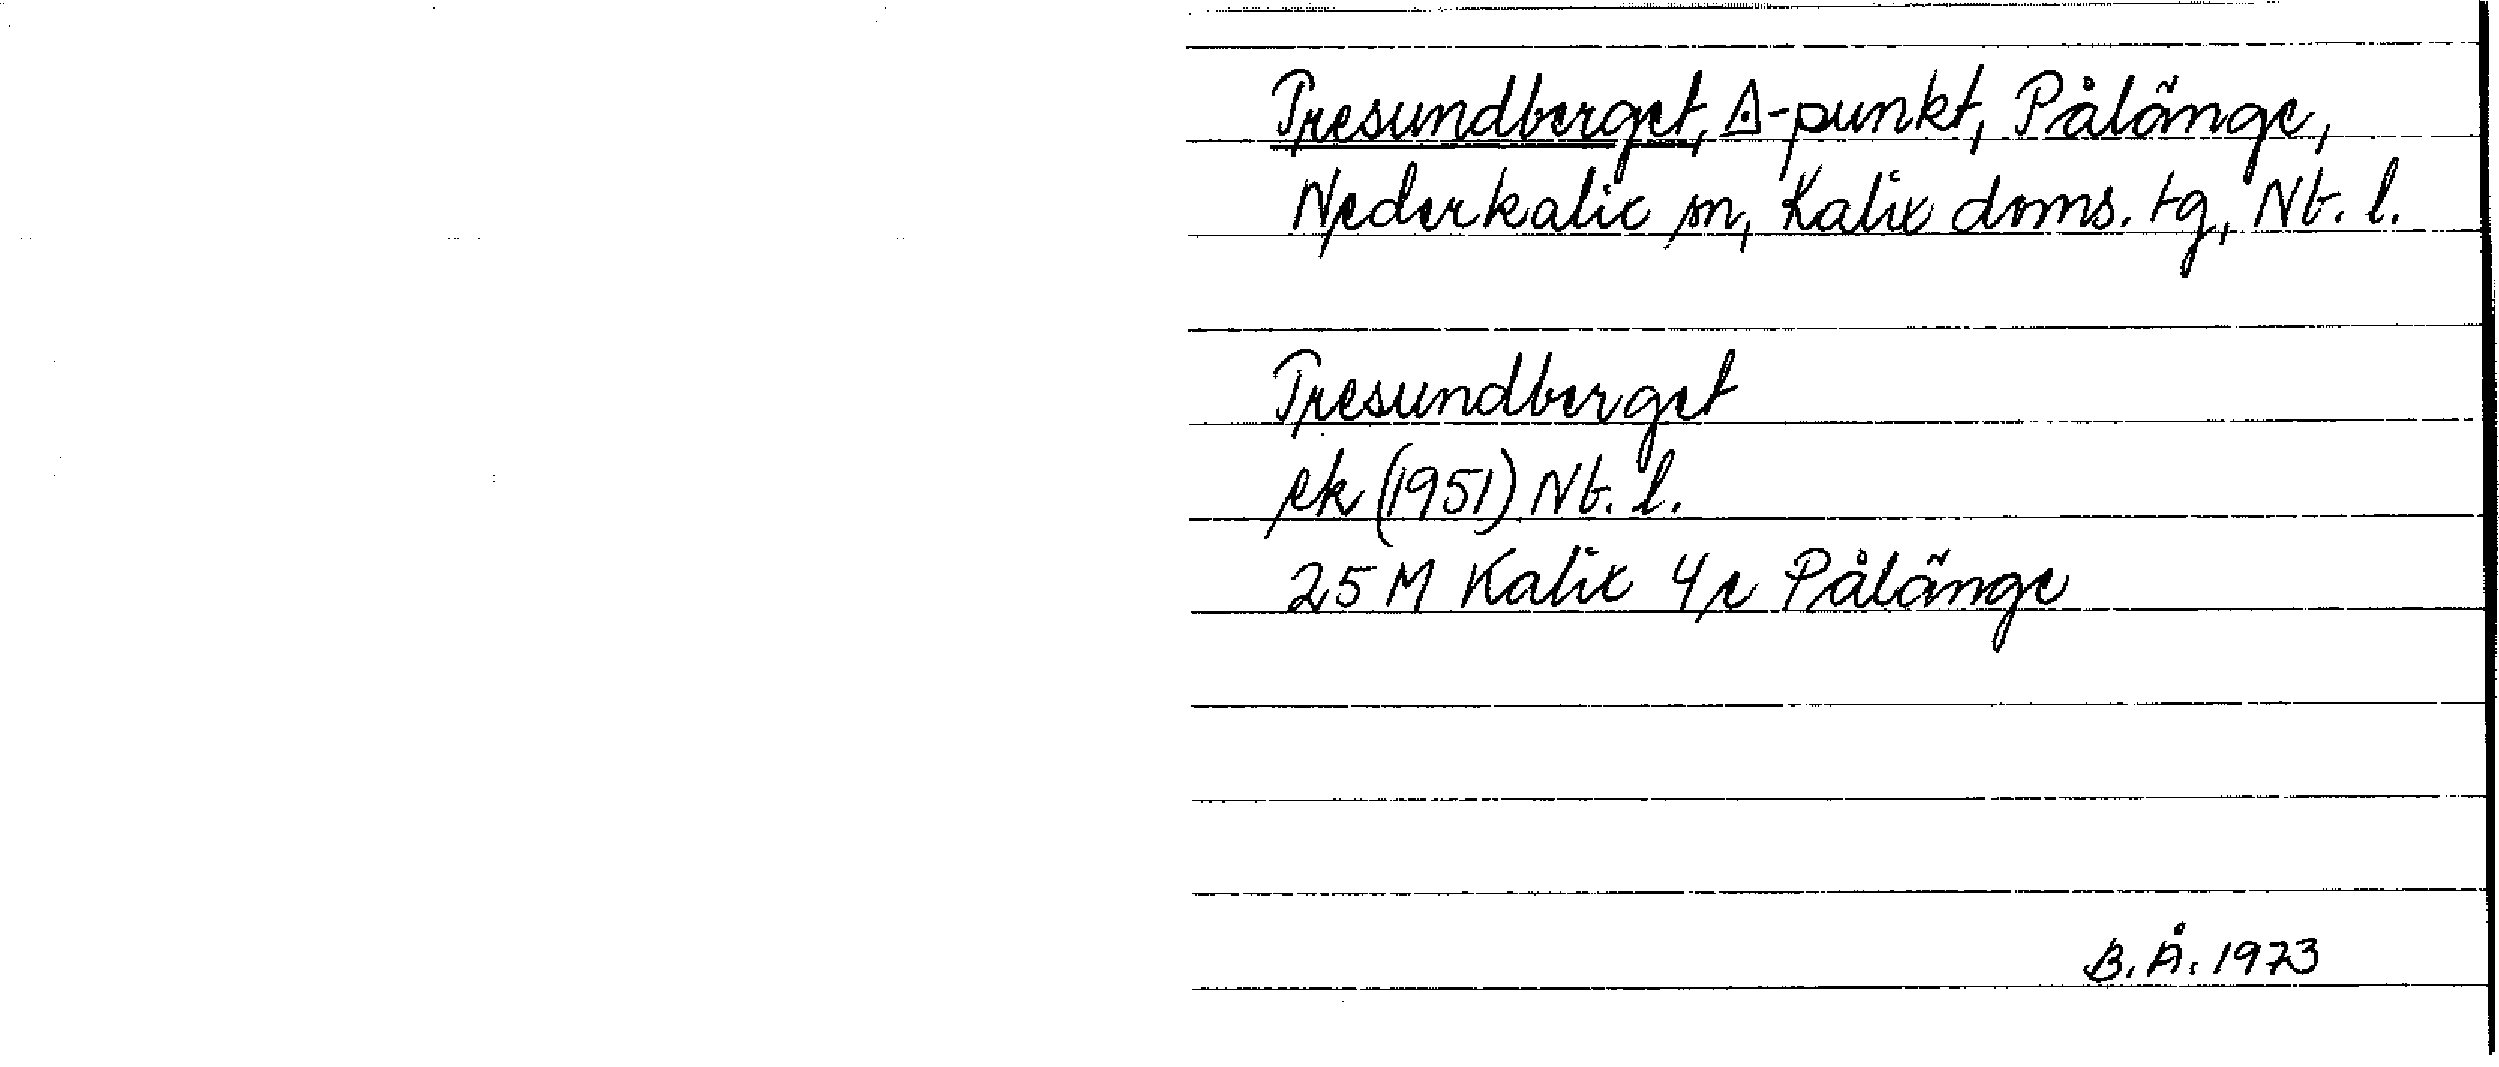 Tresundberget, ◬-punkt, Pålänge,
Nederkalix sn, Kalix doms. tg, Nb. l.
Tresundberget
ek (1951) Nb. l.
25 M Kalix 4e Pålänge
B. Å. 1973